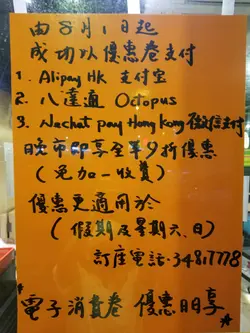 由8月1日起
成功以優惠卷支付
1. Alipay HK 支付宝
2. 八達通 Octopus
3. Wechat pay Hong Kong 微信支付
晚市即享全單9折優惠
(免加一收費)
優惠更適用於
(假期及星期六、日)
訂座電話:34817778
*電子消費卷 優惠即享*